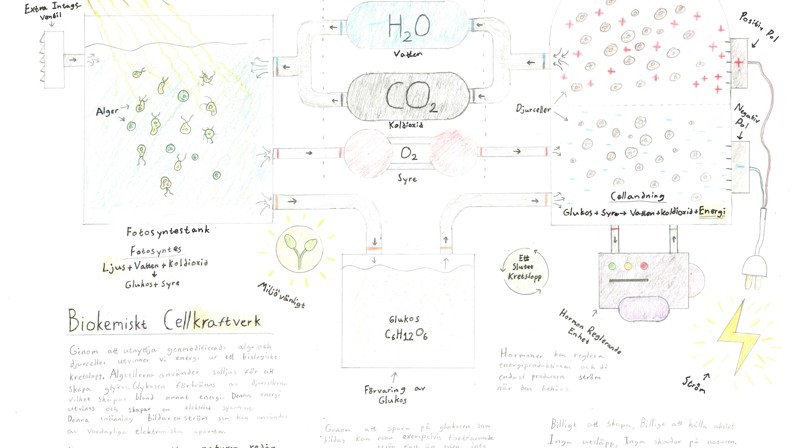 Extra Intags-
ventil
H₂O
Vatten
Positiv Pol
CO₂
Koldioxid
Alger
Djurceller
Negativ
Pol
O₂
Syre
Cellandning
Glukos + Syre → Vatten + Koldioxid + Energi
Fotosyntestank
Fotosyntes
Ljus + Vatten + Koldioxid
↓
Glukos + Syre
Miljövänligt
Ett
Slutet
Kretslopp
Glukos
C₆H₁₂O₆
Hormon Reglerande
Enhet
Ström
Förvaring av
Glukos
Biokemiskt Cellkraftverk
Genom att utnyttja genmodifierade alg och
djurceller utvinner vi energi ur ett biologiskt
kretslopp. Algcellerna använder solljus för att
skapa glykos. Glykosen förbränns av djurcellerna
vilket skapar bland annat energi. Denna energi
utvinns och skapar en elektrisk spänning.
Denna spänning bildar en ström som kan användas
av vardagliga elektroniska apparater.
Hormoner kan reglera
energiproduktionen och då
endast producera ström
när den behövs.
Genom att spara på glukosen som
bildas kan man exempelvis fortfarande
Billigt att skapa, Billigt att hålla aktivt
Ingen